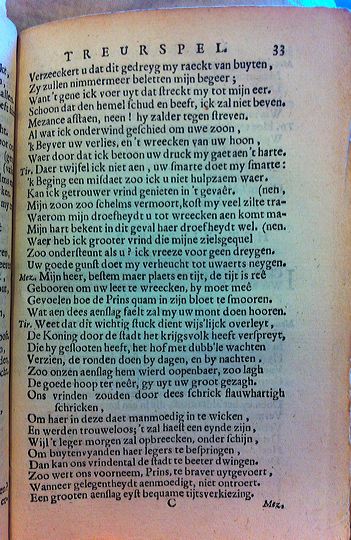 TREURSPEL. 33
Verzeeckert u dat dit gedreyg my raeckt van buyten,
Zy zullen nimmermeer beletten mijn begeer;
Want 't gene ick voer uyt dat streckt my tot mijn eer.
Schoon dat den hemel schud en beeft, ick zal niet beven.
Mezance afstaen, neen! hy zalder tegen streven.
Al wat ick onderwind geschied om uwe zoon,
'k Beyver uw verlies, en 't wreecken van uw hoon,
Waer door dat ick betoon uw druck my gaet aen 't harte.
Tir. Daer twijfel ick niet aen, uw smarte doet my smarte:
'k Beging een misdaet zoo ick u niet hulpzaem waer.
Kan ick getrouwer vrind genieten in 't gevaêr. (nen,
Mijn zoon zoo schelms vermoort, kost my veel zilte tra-
Waerom mijn droefheydt u tot wreecken aen komt ma-
Mijn hart bekent in dit geval haer droefheydt wel. (nen.
Waer heb ick grooter vrind die mijne zielsgequel
Zoo ondersteunt als u? ick vreeze voor geen dreygen.
Uw goede gunst doet my verheucht tot uwaerts neygen.
Mez. Mijn heer, bestem maer plaets en tijt, de tijt is reê
Gebooren om uw leet te wreecken, hy moet meê
Gevoelen hoe de Prins quam in zijn bloet te smooren.
Wat aen dees aenslag faelt zal my uw mont doen hooren.
Tir. Weet dat dit wichtig stuck dient wijs'lijck overleyt,
De Koning door de stadt het krijgsvolck heeft verspreyt,
Die hy geslooten heeft, het hof met dubb'le wachten
Verzien, de ronden doen by dagen, en by nachten,
Zoo onzen aenslag hem wierd oopenbaer, zoo lagh
De goede hoop ter neêr, gy uyt uw groot gezagh.
Ons vrinden zouden door dees schrick flauwhartigh
schricken,
Om haer in deze daet manmoedig in te wicken,
En werden trouweloos; 't zal haest een eynde zijn,
Wijl 't leger morgen zal opbreecken, onder schijn,
Om buytenvyanden haer legers te bespringen,
Dan kan ons vrindental de stadt te beeter dwingen.
Zoo wert ons voorneem, Prins, te braver uytgevoert,
Wanneer gelegentheydt aenmoedigt, niet ontroert.
Een grooten aenslag eyst bequame tijtsverkiezing.
C Mez.